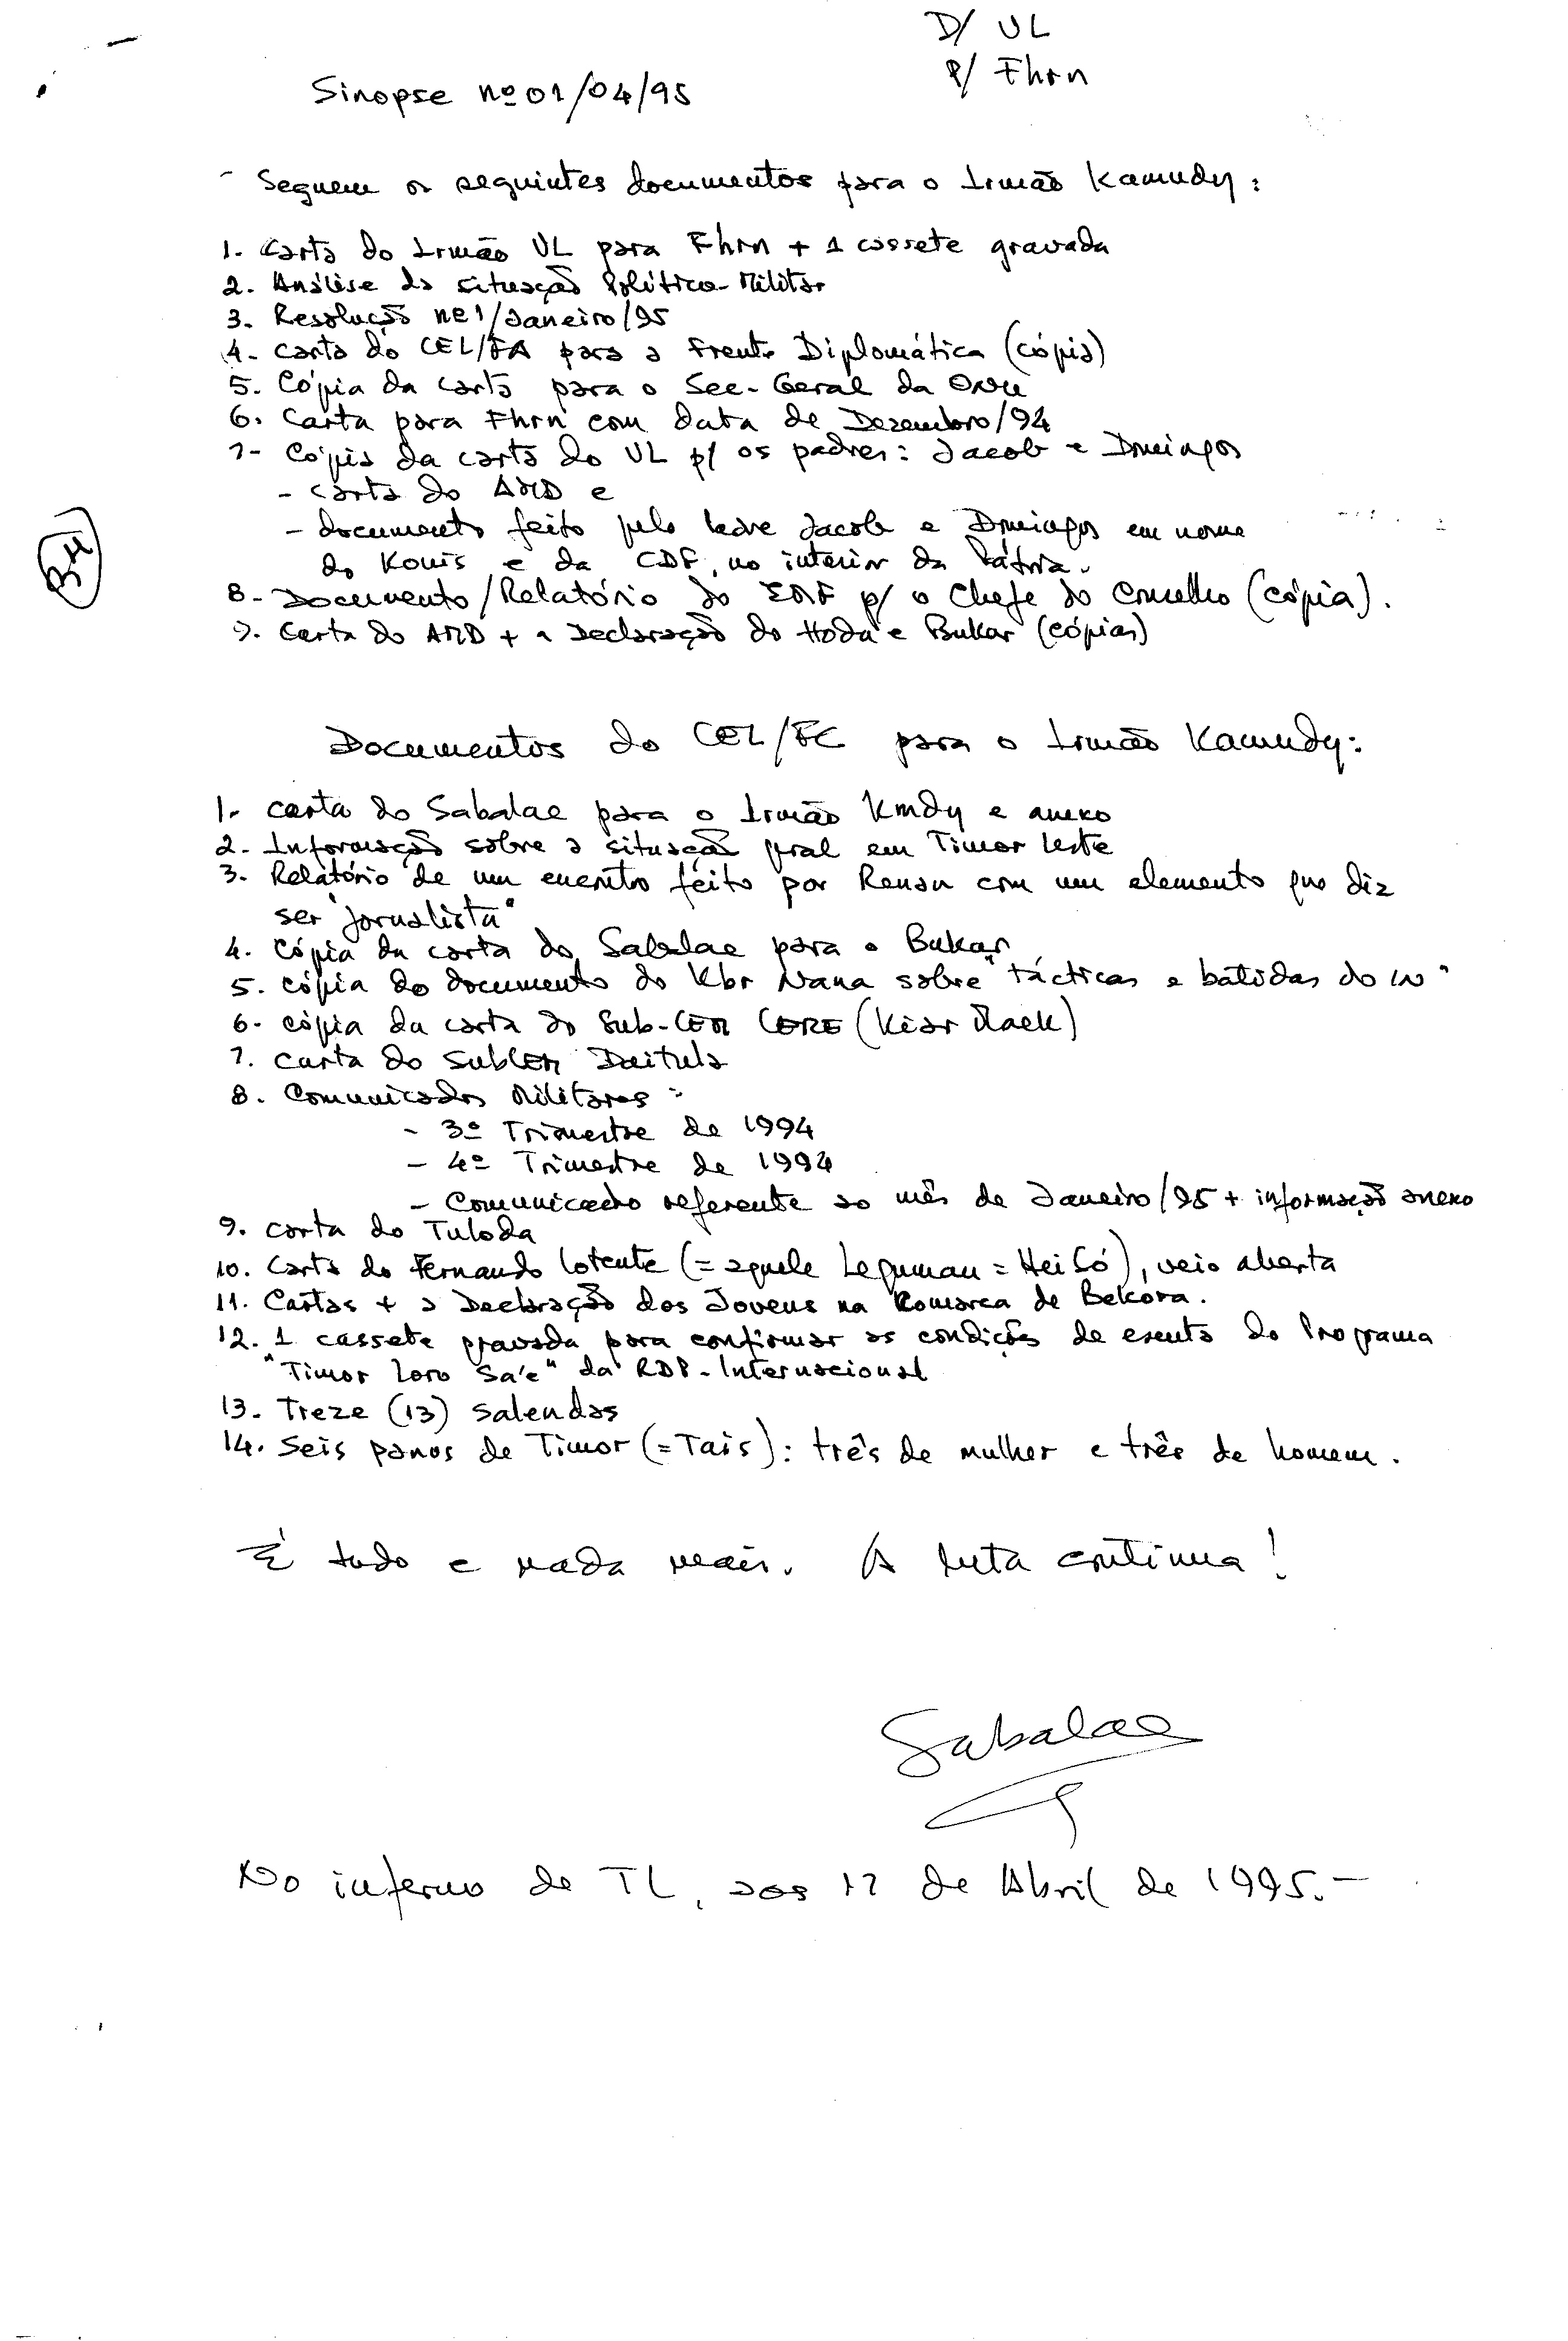 D/ UL
P/ Fhrn
Sinopse nº 01/04/95
- Seguem os seguintes documentos para o Irmão Kamudy:
1. Carta do Irmão UL para Fhrn + 1 cassete gravada
2. Análise da situação Político-Militar
3. Resolução nº 1/Janeiro/95
4- Carta do CEL/FA para a Frente Diplomática (cópia)
5. Cópia da carta para o Sec-Geral da ONU
6. Carta para Fhrn com data de Dezembro/94
7- Cópia da carta do UL p/ os padres: Jacob e Domingos
- Carta do AMD e
- documento feito pelo Padre Jacob e Domingos em nome
do Konis e da CDF, no interior da Pátria.
8- Documento/Relatório do p/ o Chefe do Conselho (cópia).
9. Carta do AMD + a Declaração do Hoda e Bukar (cópias)
Documentos do CEL/FC para o Irmão Kamudy:
1. Carta do Sabalae para o Irmão Kmdy e anexo
2. Informação sobre a situação geral em Timor Leste
3. Relatório de um encontro feito por Renan com um elemento que diz
ser "jornalista"
4. Cópia da carta do Sabalae para o Bukar
5. Cópia do documento do Kbr Nana sobre "tácticas e batidas do IN"
6. cópia da carta do Sub-CEM CERE (Kiar Mack)
7. Carta do SubCEM Daitula
8. Comunicados Militares:
- 3º Trimestre de 1994
- 4º Trimestre de 1994
- Comunicado referente ao mês de Janeiro/95 + informação anexo
9. Carta do Tuloda
10. Carta do Fernando Lotente (= aquele Leguman = Hei Só), veio aberta
11. Cartas + a Declaração dos Jovens na Komarca de Bekora.
12. 1 cassete gravada para confirmar as condições de escuta do Programa
"Timor Loro Sa'e" da RDP-Internacional
13. Treze (13) Salendas
14. Seis panos de Timor (= Tais): três de mulher e três de homem.
É tudo e nada mais. A luta continua!
Sabalae
No inferno de TL, aos 17 de Abril de 1995.-